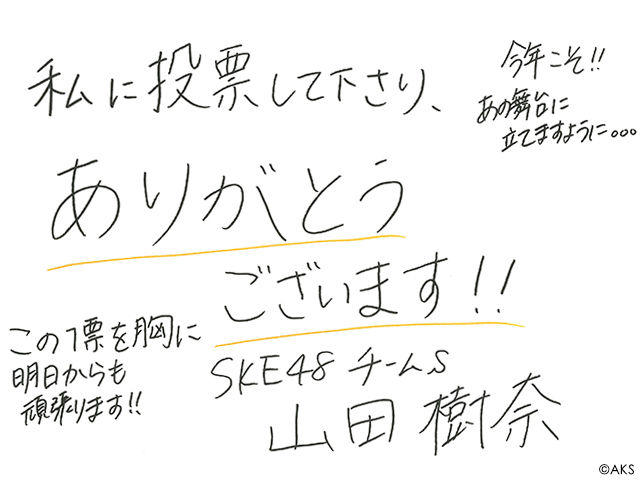 私に投票して下さり、
ありがとう
ございます!!
今年こそ!!
あの舞台に
立てますように。。。
この1票を胸に
明日からも
頑張ります!!
SKE48 チームS
山田樹奈
©AKS